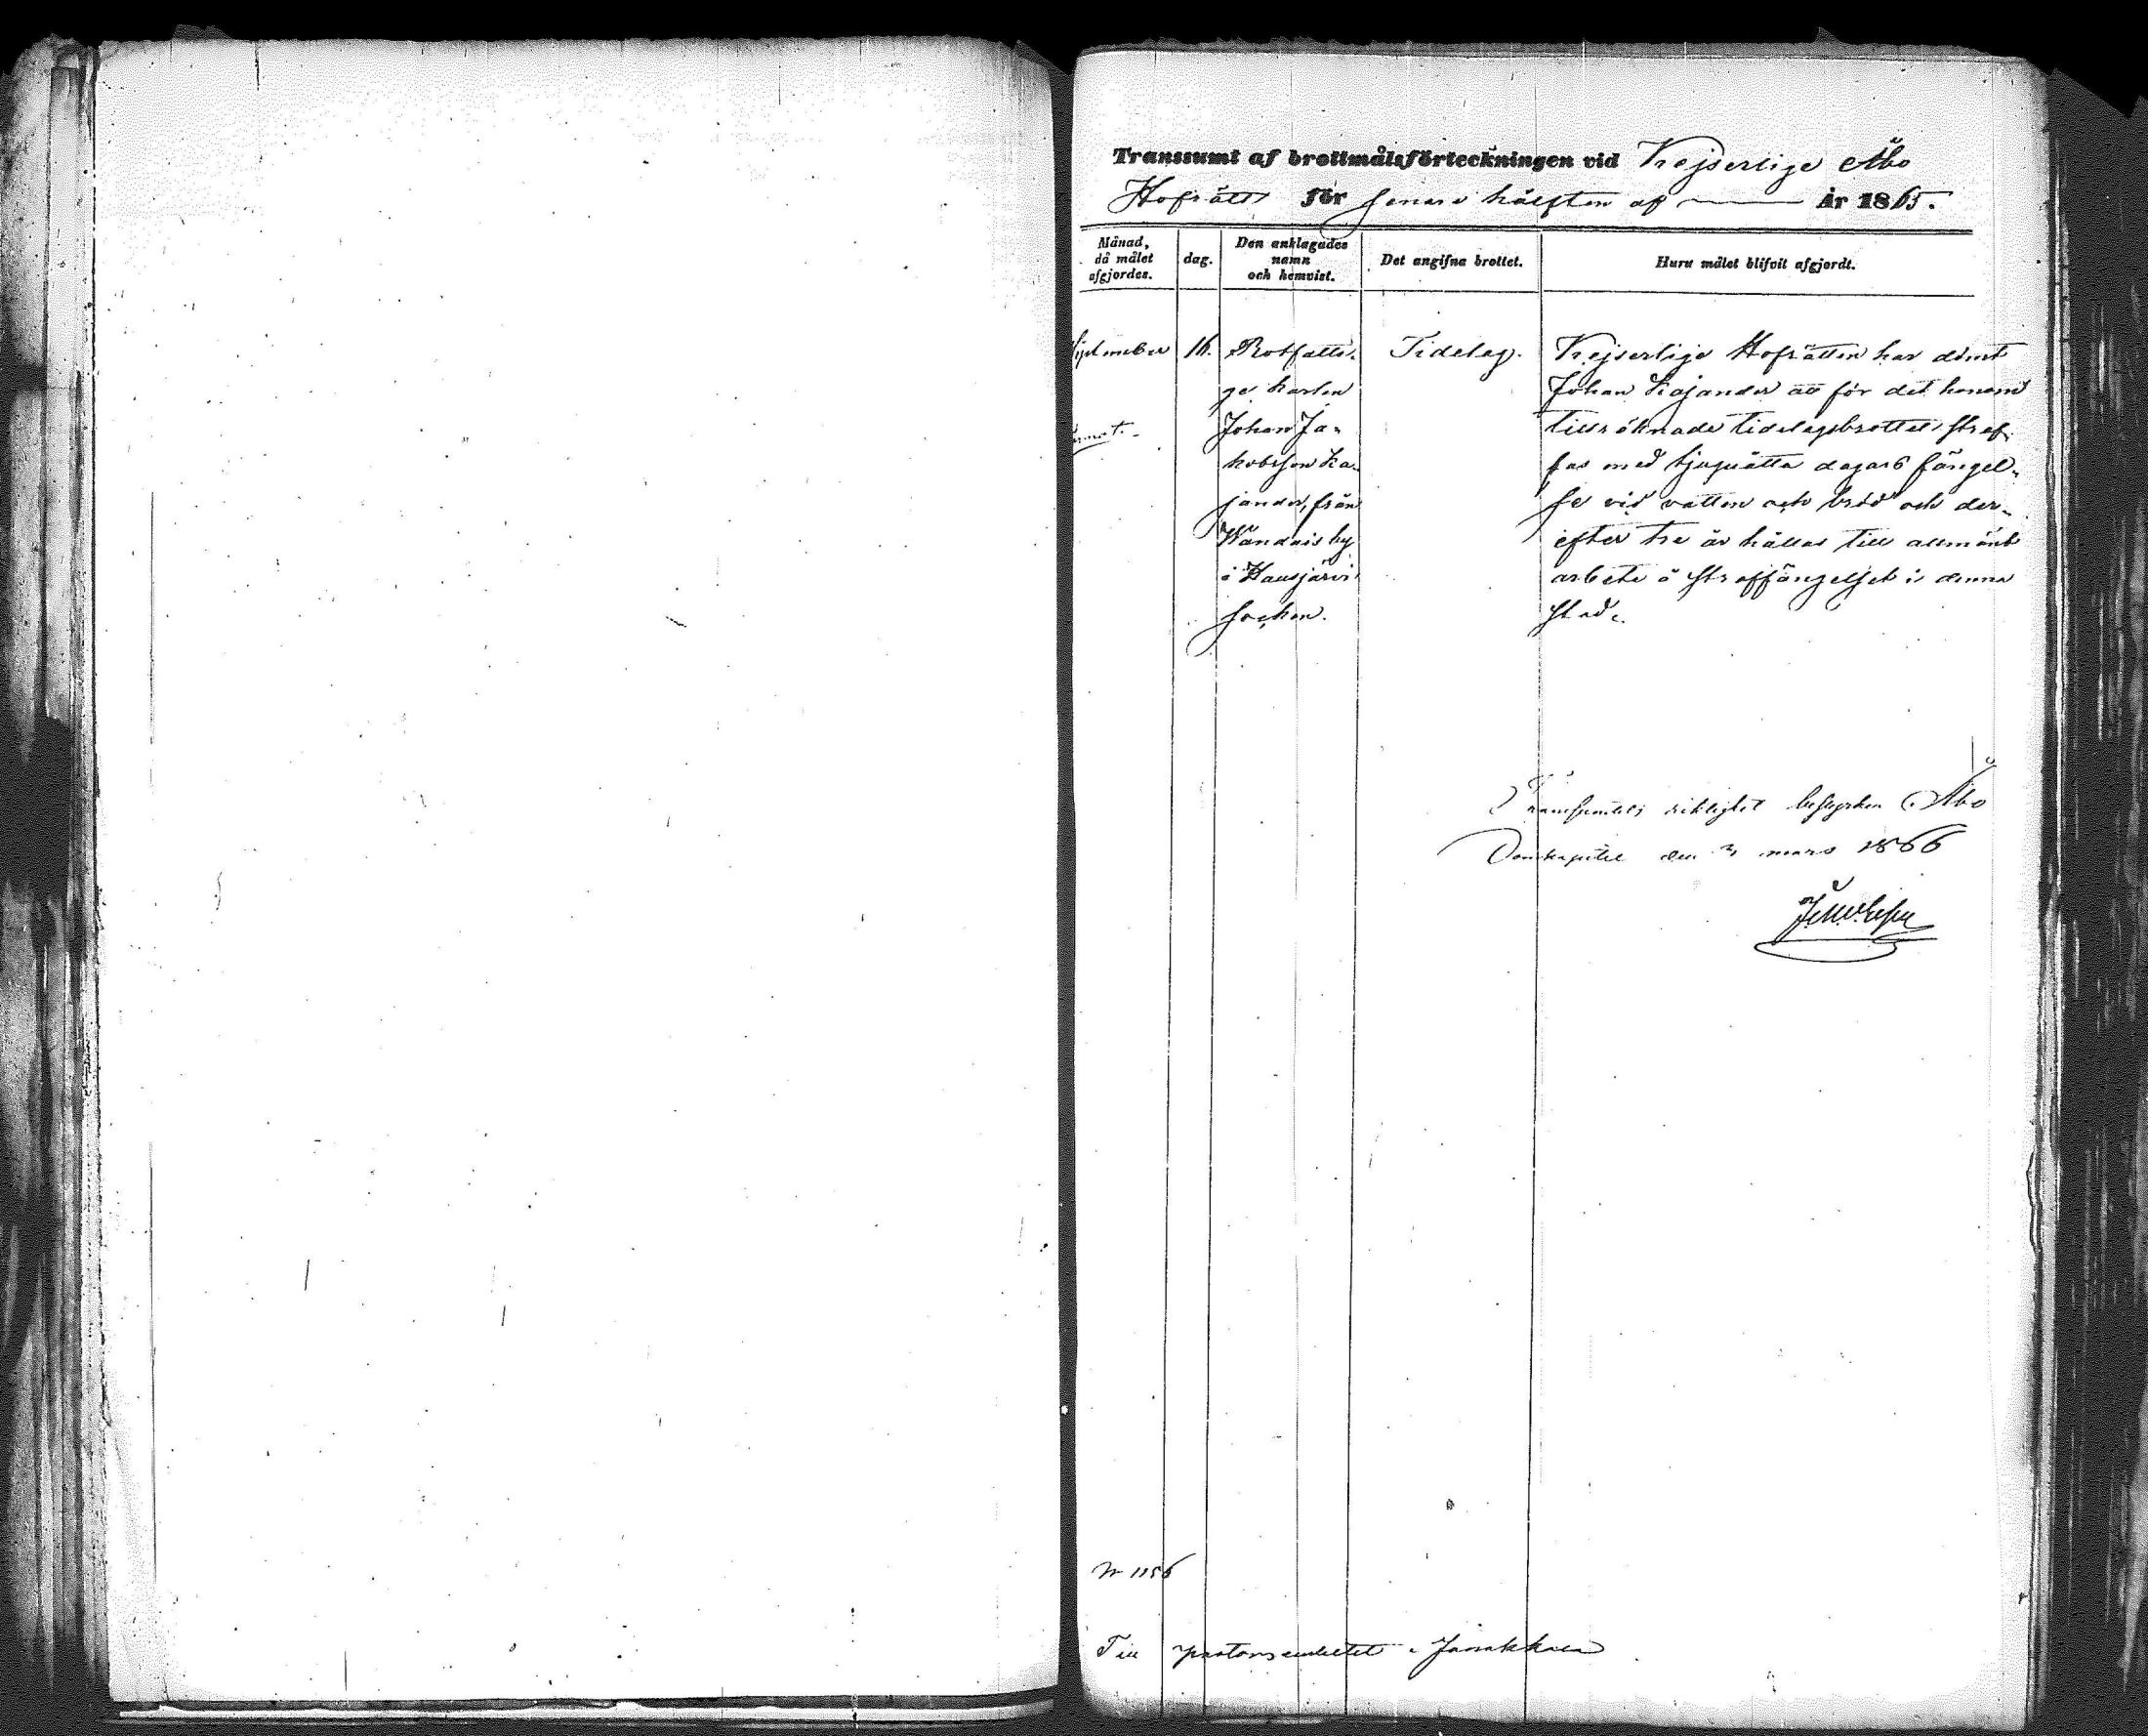 Transsumt af brottmålsförteckningen vid Kejserlige Åbo
Hofrätt för senare hälften af År 1865.
Månad,
då målet
afgjordes.
dag.
Den anklagades
namn
och hemvist.
Det angifna brottet.
Huru målet blifvit afgjordt.
September
16.
Rotfatti-
ge karlen
Johan Ja-
kobsson Ka-
jander, från
by
i Hausjärvi
socken.
Tidelag.
Kejserlige Hofrätten har dömt
Johan Kajander att för det honom
tillräknade tidelagsbrottet straf-
fas med tjuguåtta dagars fängel-
se vid vatten och bröd och der-
efter tre år hållas till allmänt
arbete å straffängelset i denna
stad.
Transsumtets riktighet bestyrker Åbo
Domkapitel den mars 1866
N 1156
Till pastorsembetet i Janakkala